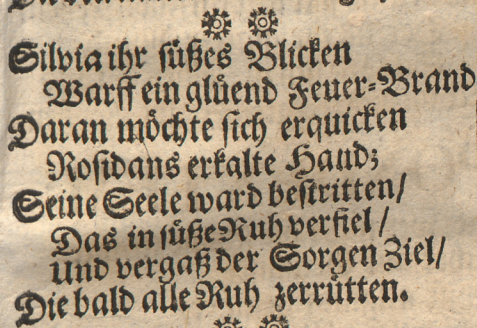 Silvia ihr süßes Blicken
Warff ein glüend Feuer-Brand
Daran möchte sich erquicken
Rosidans erkalte Hand;
Seine Seele ward bestritten/
Das in süße Ruh verfiel /
Und vergaß der Sorgen Ziel/
Die bald alle Ruh zerrütten.